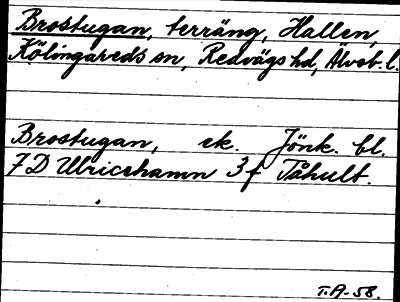 Brostugan, terräng, Hallen,
Kölingareds sn, Redvägs hd, Älvsb. l.
Brostugan, ek. Jönk. bl.
7D Ulricehamn 3f Påhult.
T.A-58.